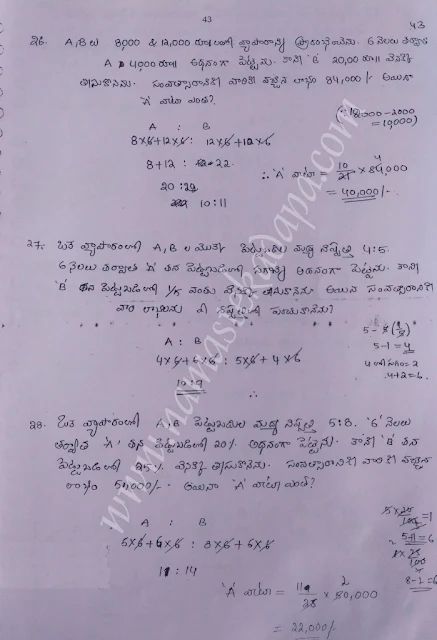 43
43
26. A, B లు 8000 & 12,000 రూ॥లతో వ్యాపారాన్ని ప్రారంభించెను. 6 నెలలు తర్వాత
A 4000 రూ॥ అధనంగా పెట్టెను. కాని 'B' 20,00 రూ॥ వెనక్కి
తీసుకొనెను. సంవత్సరానికి వారికి వచ్చిన లాభం 84,000/- అయిన
'A' వాటా ఎంత?
(∵ 12000-2000
= 10,000)
A : B
8×6+12×6 : 12×6+10×6
8+12 : 22
20 : 22
10:11
∴ 'A' వాటా = 10/21 × 84,000
= 40,000/-
27. ఒక వ్యాపారంలో A, B ల యొక్క పెట్టుబడుల మధ్య నిష్పత్తి 4:5.
6 నెలలు తర్వాత 'A' తన పెట్టుబడిలో సగాన్ని అధనంగా పెట్టెను. కాని
'B' తన పెట్టుబడిలో 1/5 వంతు వెనక్కి తీసుకొనెను అయిన సంవత్సరానికి
వారి లాభాలను ఏ నిష్పత్తిలో పంచుకొనెను?
A : B
4×6+6×6 : 5×6+4×6
10:9
∴
5-1=4
4 లో సగం=2
4+2=6
28. ఒక వ్యాపారంలో A, B పెట్టుబడుల మధ్య నిష్పత్తి 5:8. '6' నెలలు
తర్వాత 'A' తన పెట్టుబడిలో 20% అధనంగా పెట్టెను. కానీ B తన
పెట్టుబడిలో 25% వెనక్కి తీసుకొనెను. సంవత్సరానికి వారికి వచ్చిన
లాభం 50,000/-. అయినా 'A' వాటా ఎంత?
A : B
5×6+6×6 : 8×6+6×6
11 : 14
5+1=6
8-2=6
'A' వాటా = 11/25 × 50,000
= 22,000/-
www.namastekadapa.com